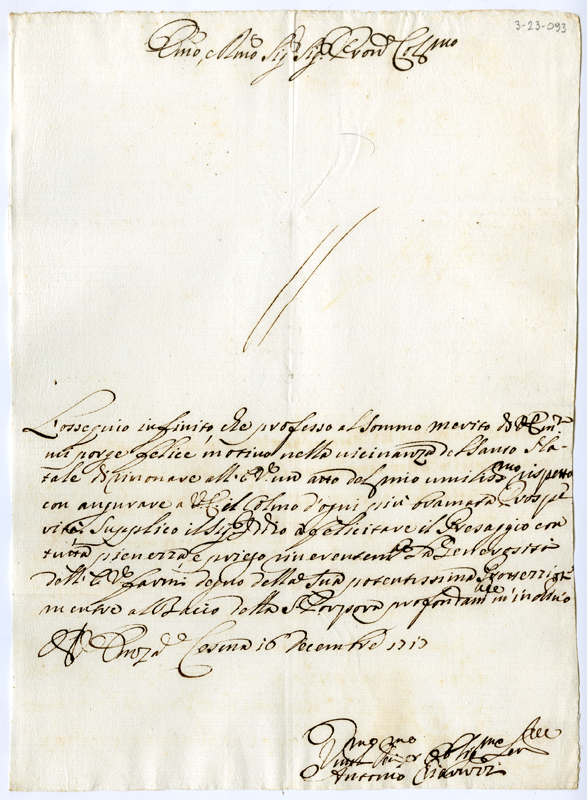 3-23-093
Emo, e Rmo Sig.r Sig.r e Pron Colmo
L'ossequio infinito, che professo al sommo merito di V. Em.za
mi porge felice motivo nella vicinanza del Santo Na-
tale di rinovare all'E.V. un atto del mio umiliss.mo rispetto
con augurare a V.E. il Colmo d'ogni più bramata Prospe
rità. Supplico il Sig.r Iddio a felicitare il Presaggio con
tutta pienezza, e priego riverentem.te la Generosità
dell'E.V. farmi degno della Sua potentissima Protezzione
mentre al Bacio della S. Porpora profondam.te m'inchino
Di V. Emza Cesena 16 Decembre 1717
Umo mo
Servitore
Antonio